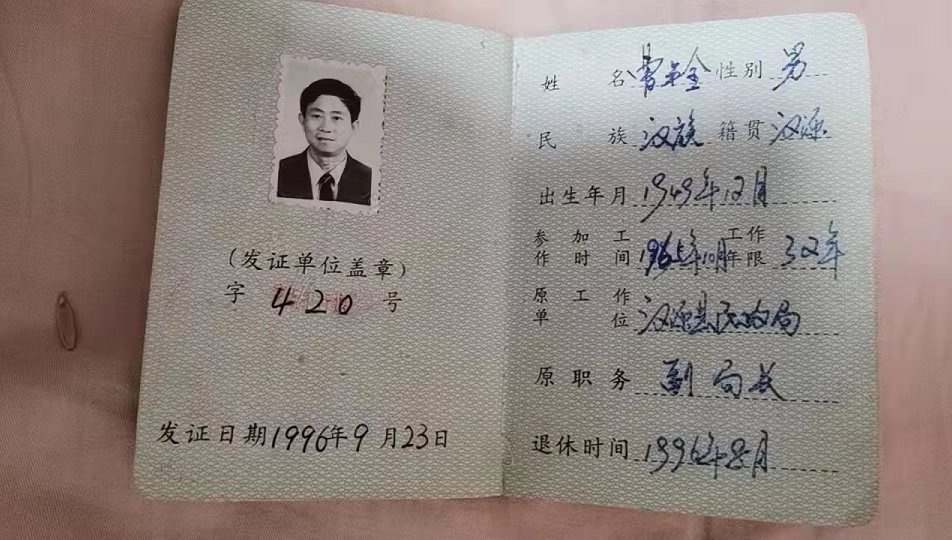 (发证单位盖章)
字 420 号
发证日期1996年9月23日
姓名 曾 全 性别 男
民族 汉族 籍贯 汉源
出生年月 1949年12月
参加工作时间 1965年10月 工作年限 32年
原工作单位 汉源县民政局
原职务 副局长
退休时间 1996年8月